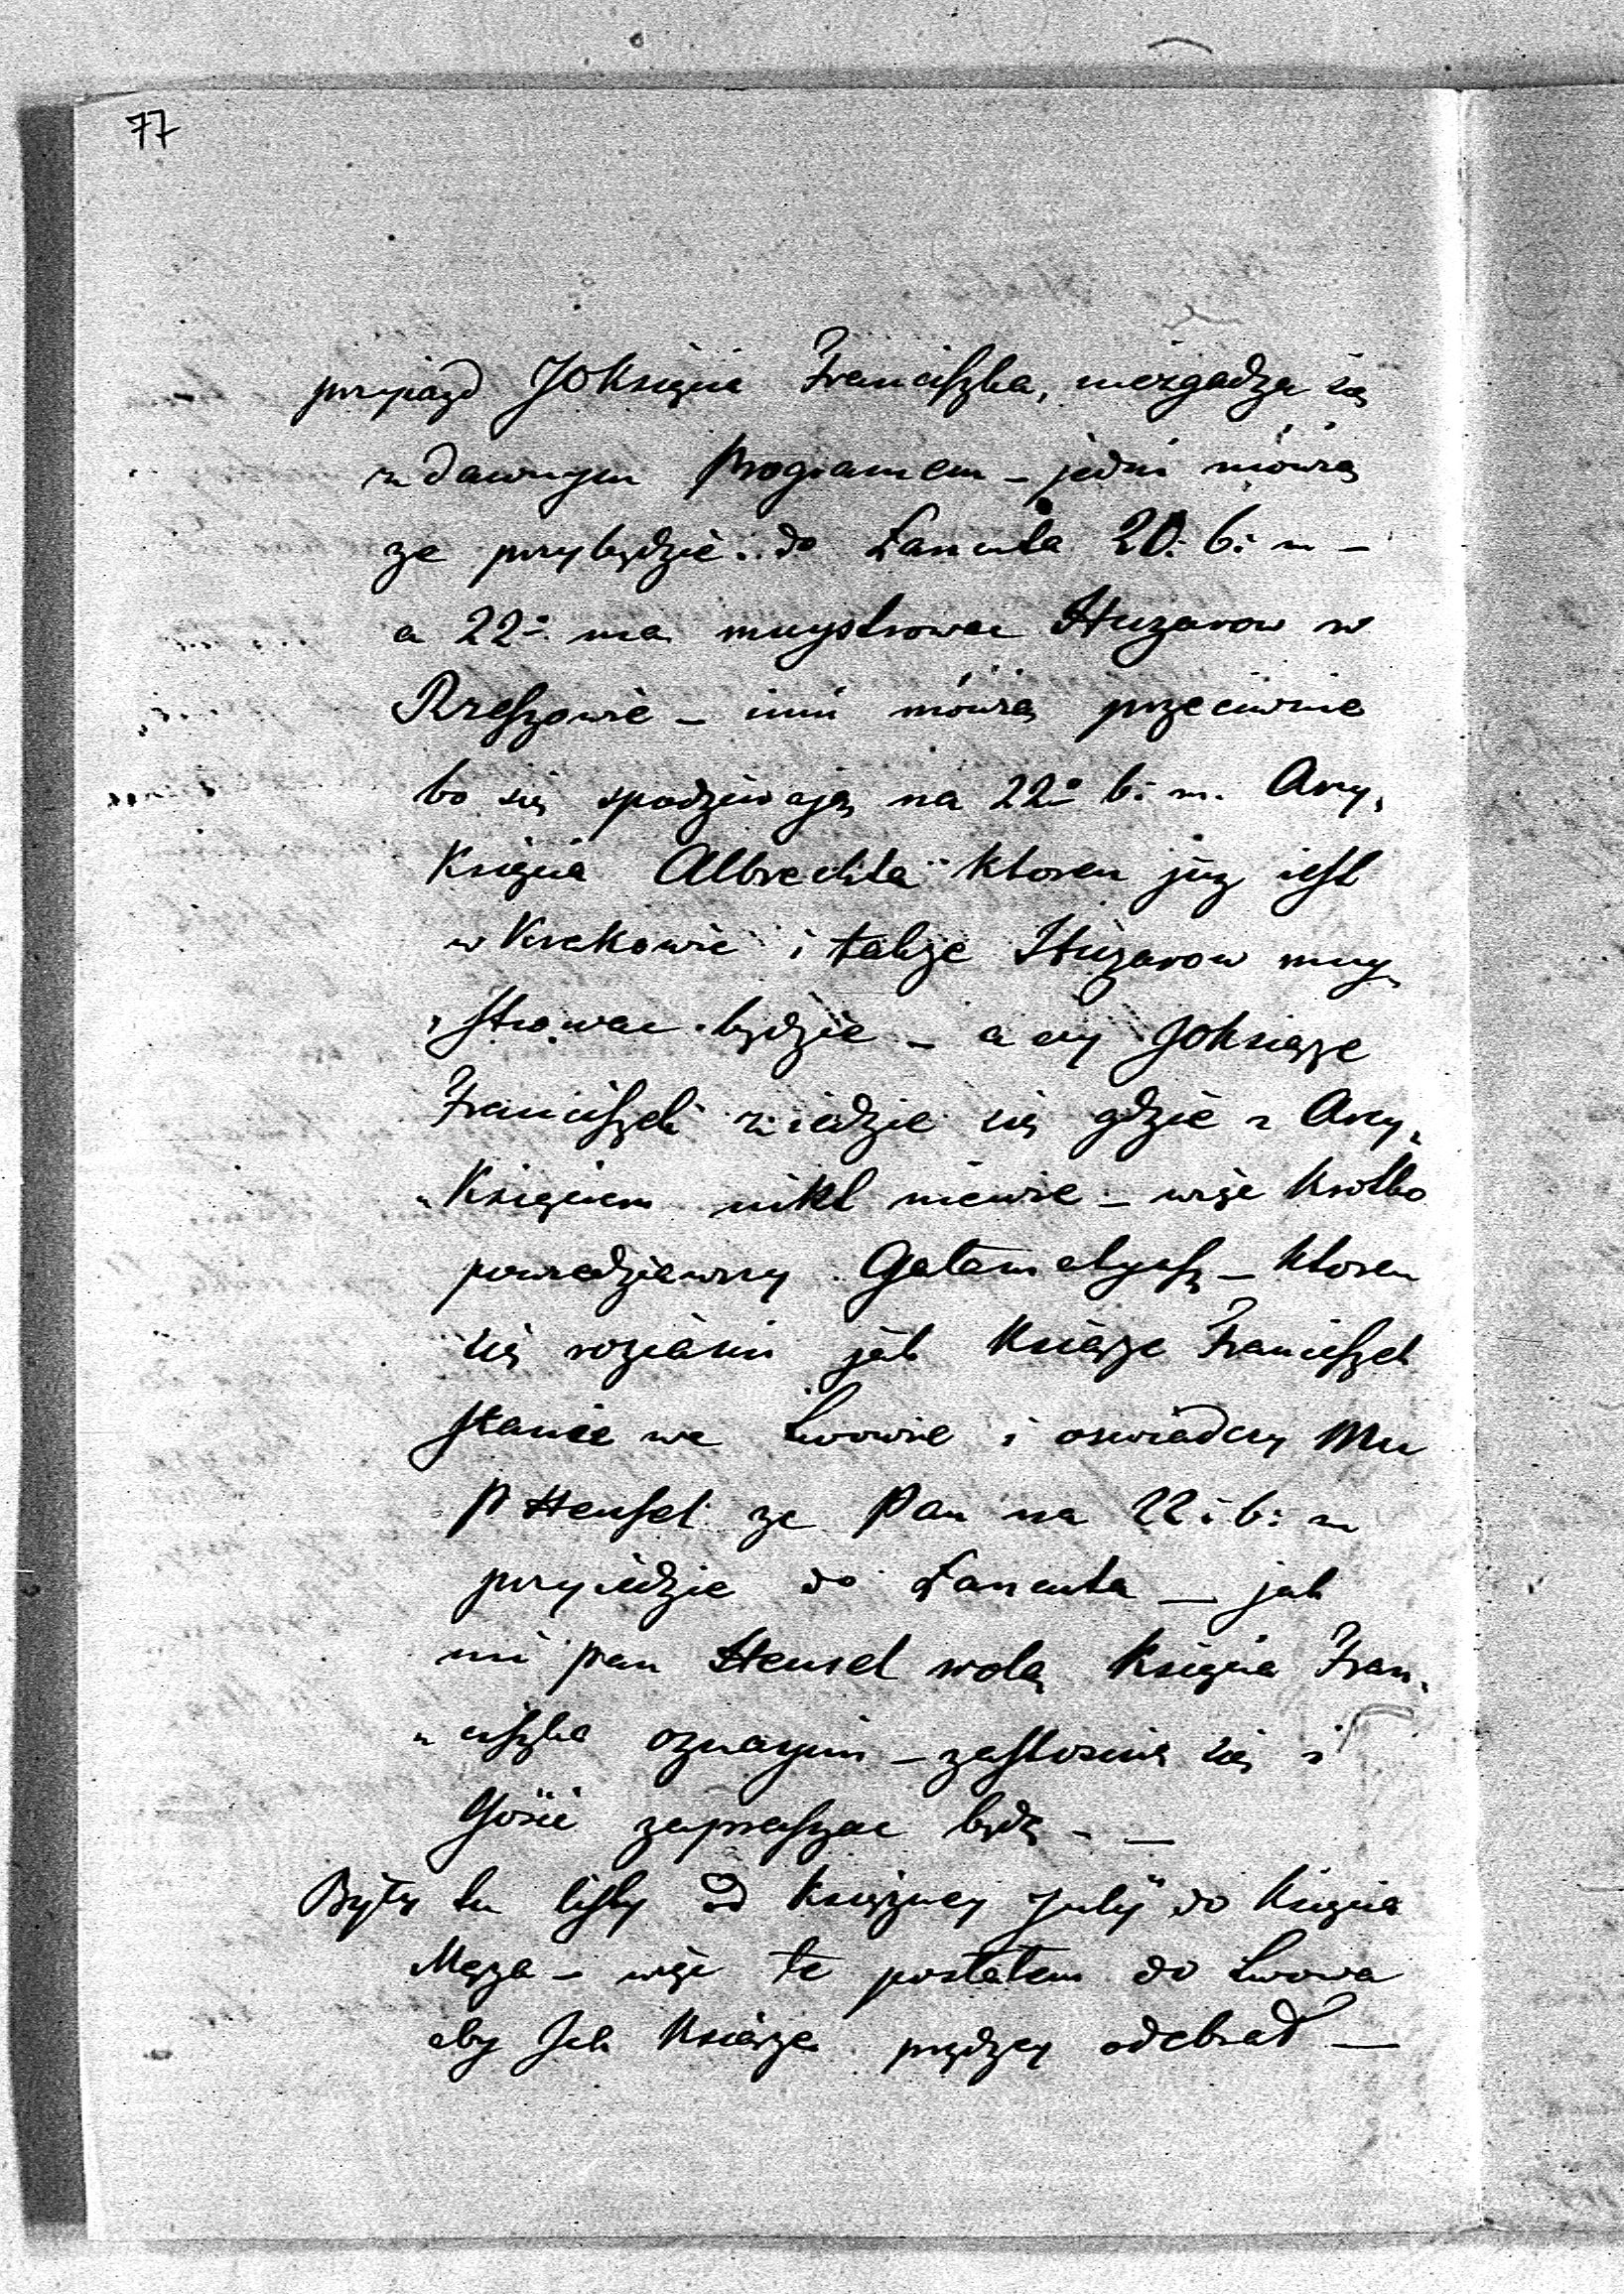 77
przyiazd JOKsięcia Franciszka, niezgadza się
z dawnym Programem – jedni mówią
ze przybędzie do Łancuta 20. b: m –
a 22º ma musztrowac Huzarow w
Rzeszowie – inni mówią przeciwnie
bo się spodziewają na 22º b: m. Arcy„
Księcia Albrechta ktoren juz iest
w Krakowie i takze Huzarow muy„
„strowac będzie – a czy JOksiąze
Franciszek ziedzie się gdzie z Arcy„
„Księciem nikt niewie – więc krotko
powiedziawszy Galamatyasz – ktoren
się roziasni jak Ksiąze Franciszek
stanie we Lwowie i oswiadczy Mu
P Hensel ze Pan na 22: b: m
przyiedzie do Łancuta – jak
mi pan Hensel wolą Księcia Fran„
„ciszka oznaymi – zastosuię się i
Gosci zapraszac będę – –
Były tu listy od Księzney Julÿ do Księcia
Męza – więc te posłałem do Lwowa
aby Jch Ksiąze prędzey odebrał –